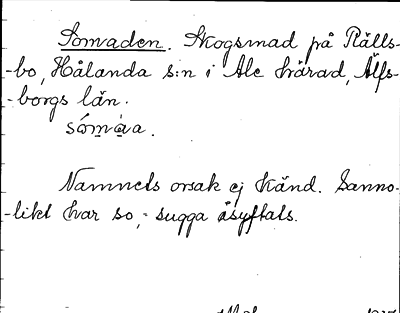 Somaden. Skogsmad på Rälls-
-bo, Hålanda s:n i Ale härad, Älfs-
-borgs län.
sómàa.
Namnets orsak ej känd. Sanno-
-likt har so, - sugga åsyftats.